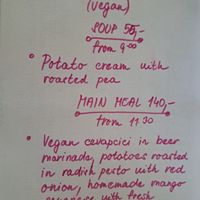 (vegan)
SOUP 55,-
from 9:00
• Potato cream with
roasted pea
MAIN MEAL 140,-
from 11:30
• Vegan cevapcici in beer
marinada, potatoes roasted
in radish pesto with red
onion, homemade mango
with fresh